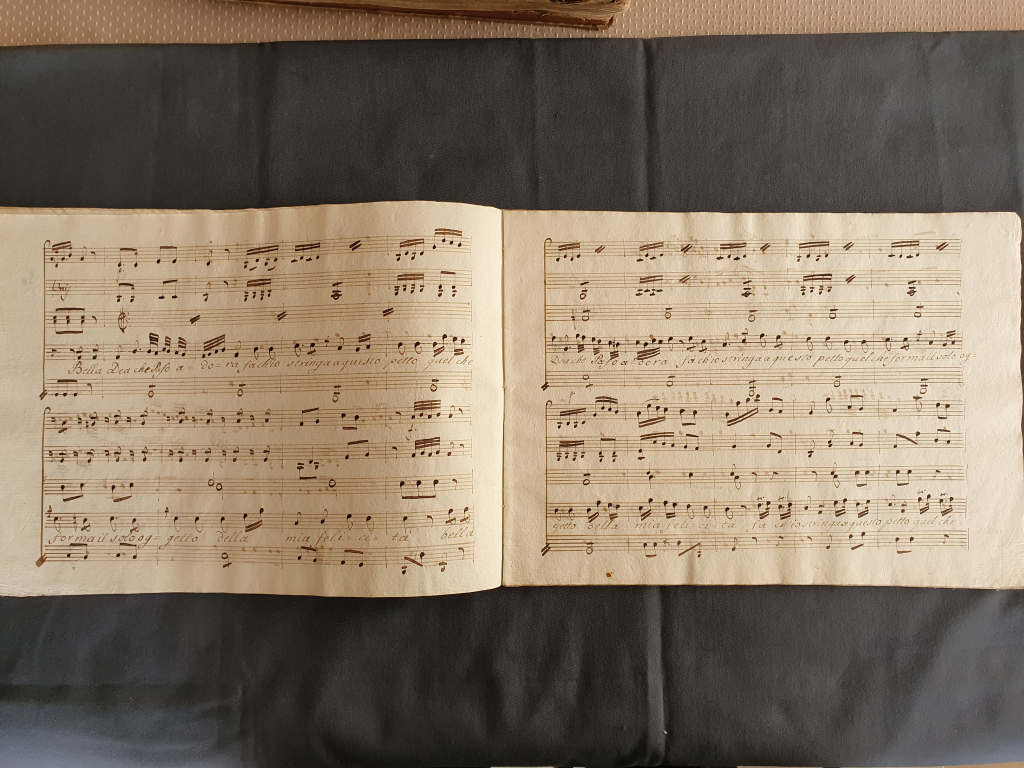 Bella Dea che Pafo a = do = ra fa ch'io stringa a questo petto quel che
forma il solo og = getto della mia feli = ci = tà bella
Dea che Pafo adora fa ch'io stringa a questo petto quel che forma il solo og =
getto della mia feli = ci = ta, fa ch'io stringa a questo petto quel che